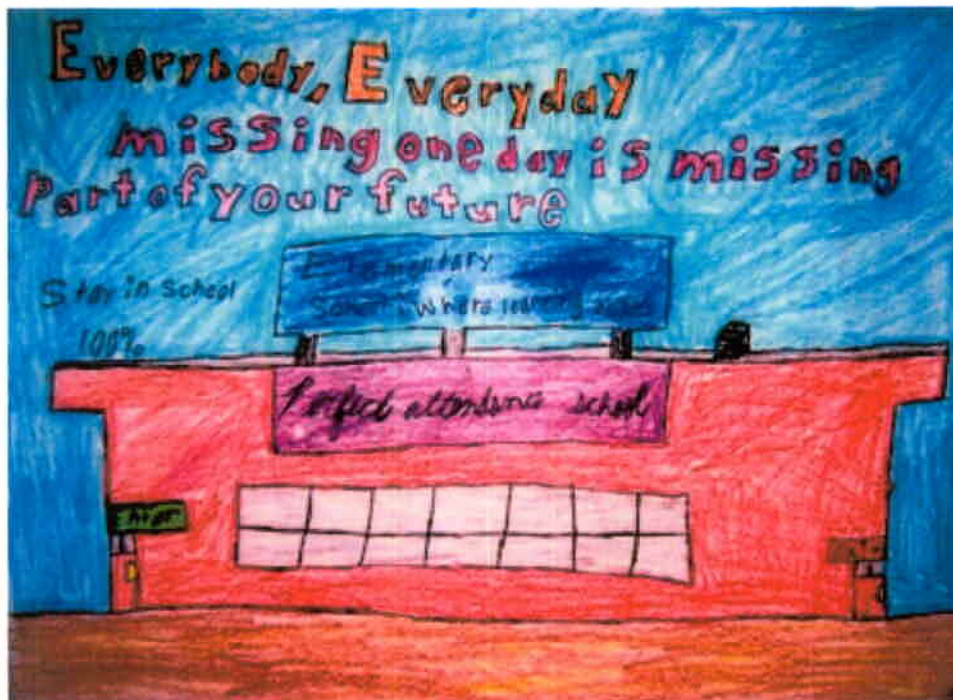 Everybody, Everyday
missing one day is missing
Part of your future
Stay in School
100%
Elementary
School: where learning
Perfect attendance school
Enter